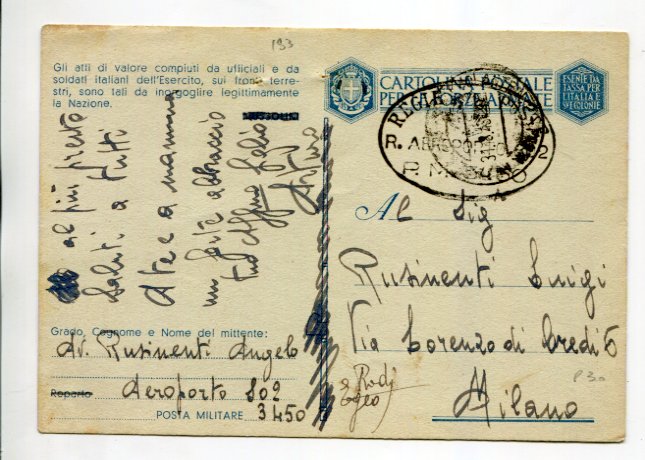 193
Gli atti di valore compiuti da ufficiali e da
soldati italiani dell'Esercito, sui fronti terre-
stri, sono tali da inorgoglire legittimamente
la Nazione.
al più presto
Saluti a tutti
A te e a mamma
un forte abbraccio
tuo
Grado, Cognome e Nome del mittente:
Av. Rusinenti Angelo
Reparto Aeroporto 802
POSTA MILITARE 3450
CARTOLINA POSTALE
PER LE FORZE ARMATE
ESENTE DA
TASSA PER
L'ITALIA E
COLONIE
REGIA
R. AEROPORTO
P. M.
Al Sig
Rusinenti Luigi
Via Lorenzo di Credi 5
Milano
Rodi
Egeo